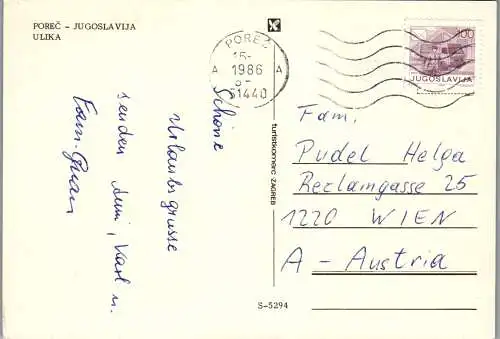 POREČ – JUGOSLAVIJA
ULIKA
POREČ
15-
A 1986 A
51440
100
JUGOSLAVIJA
Schöne
Urlaubsgrüsse
senden Anni, Karl u.
Fam.
turistkomerc-ZAGREB
Fam.
Pudel Helga
Reclamgasse 25
1220 WIEN
A - Austria
S-5294